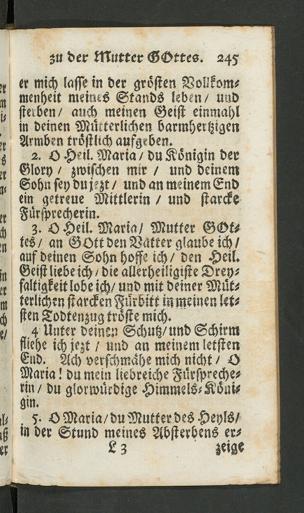 zu der Mutter GOttes. 245
er mich lasse in der grösten Vollkom-
menheit meines Stands leben / und
sterben / auch meinen Geist einmahl
in deinen Mütterlichen barmhertzigen
Armben tröstlich aufgeben.
2. O Heil. Maria / du Königin der
Glory / zwischen mir / und deinem
Sohn sey du jezt / und an meinem End
ein getreue Mittlerin / und starcke
Fürsprecherin.
3. O Heil. Maria / Mutter GOt-
tes / an GOtt den Vatter glaube ich /
auf deinen Sohn hoffe ich / den Heil.
Geist liebe ich / die allerheiligiste Drey-
faltigkeit lobe ich / und mit deiner Müt-
terlichen starcken Fürbitt in meinen let-
sten Todtenzug tröste mich.
4 Unter deinen Schutz / und Schirm
fliehe ich jezt / und an meinem letsten
End. Ach verschmähe mich nicht / O
Maria! du mein liebreiche Fürspreche-
rin / du glorwürdige Himmels-Köni-
gin.
5. O Maria / du Mutter des Heyls /
in der Stund meines Absterbens er-
L 3 zeige